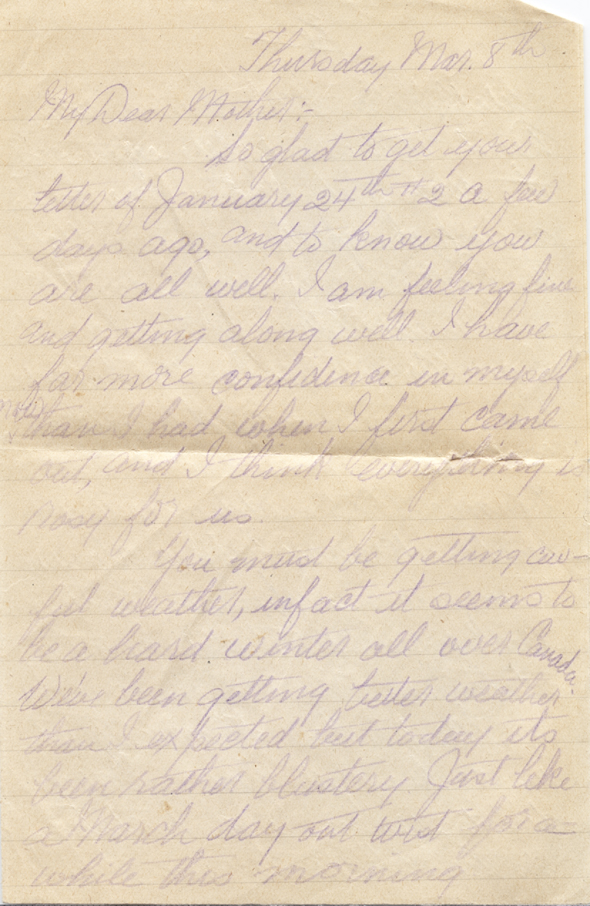 Thursday Mar. 8th
My Dear Mother:-
So glad to get your
letter of January 24th # 2 a few
days ago, and to know you
are all well. I am feeling fine
and getting along well. I have
far more confidence in myself
now
than I had when I first came
out, and I think everything is
rosy for us.
You must be getting
weather, in fact it seems to
be a hard winter all over Canada.
We've been getting better weather
than I expected but today its
been rather blustery. Just like
a March day out west for a
while this morning